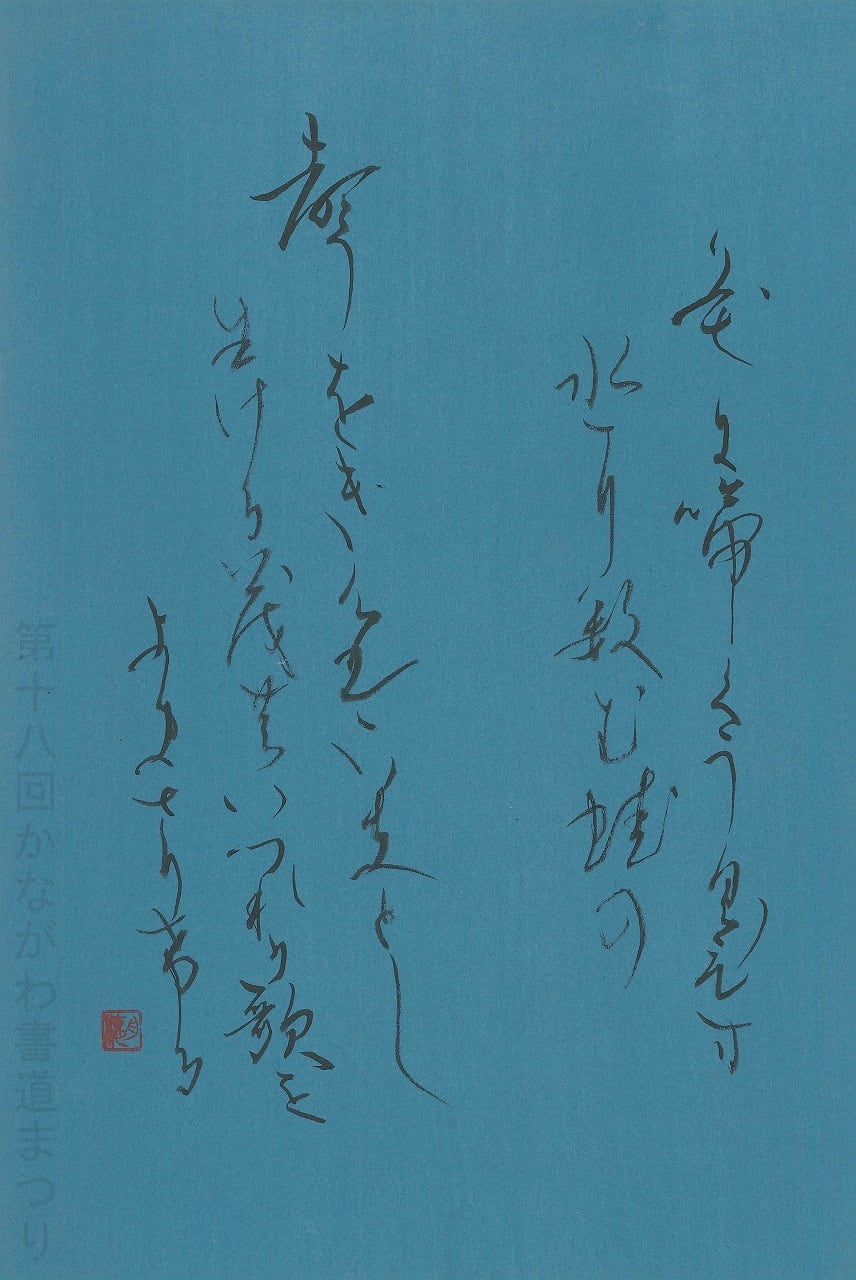 花に啼くうくひす
水に数む蛙の
聲をきけはいきとし
生ける茂のいつれか歌を
よまさり希る
第十八回かながわ書道まつり